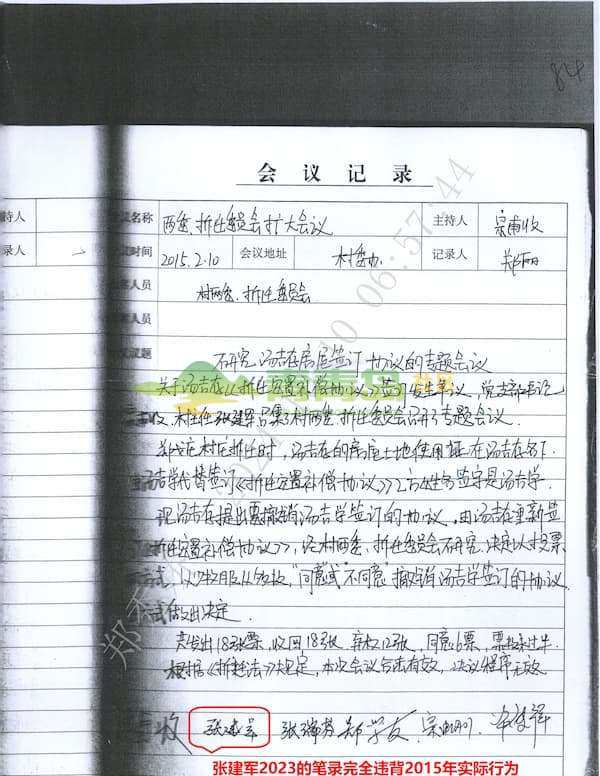 84
会议记录
持人
会议名称 两委、拆迁委员会扩大会议 主持人 宗甫收
录人
会议时间 2015.2.10 会议地址 村委办 记录人 郑丽
席人员 村两委、拆迁委员会
席人员
议议题
研究汤吉存房屋签订协议的专题会议
关于汤吉存《拆迁安置补偿协议》签订发生争议,党支部书记
收,村主任张建军召集村两委、拆迁委员会召开了专题会议。
庄村拆迁时,汤吉存的房屋土地使用证在汤吉存名下
汤吉学代替签订《拆迁安置补偿协议》乙方姓名签字是汤吉学。
现汤吉存提出要撤销汤吉学签订的协议,由汤吉存重新签
《拆迁安置补偿协议》,经村两委、拆迁委员会研究,决定以投票
方式,以少数服从多数,"同意"或"不同意"撤销汤吉学签订的协议,
做出决定。
共发出18张票,收回18张,弃权12张,同意6票,票数未过半。
根据《拆迁法》规定,本次会议合法有效,决议程序无效。
收 张建军 张瑞芬 郑学友
张建军2023的笔录完全违背2015年实际行为